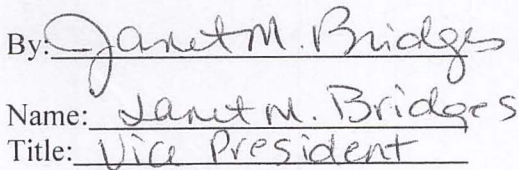 By: Janet M. Bridges
Name: Janet M. Bridges
Title: Vice President